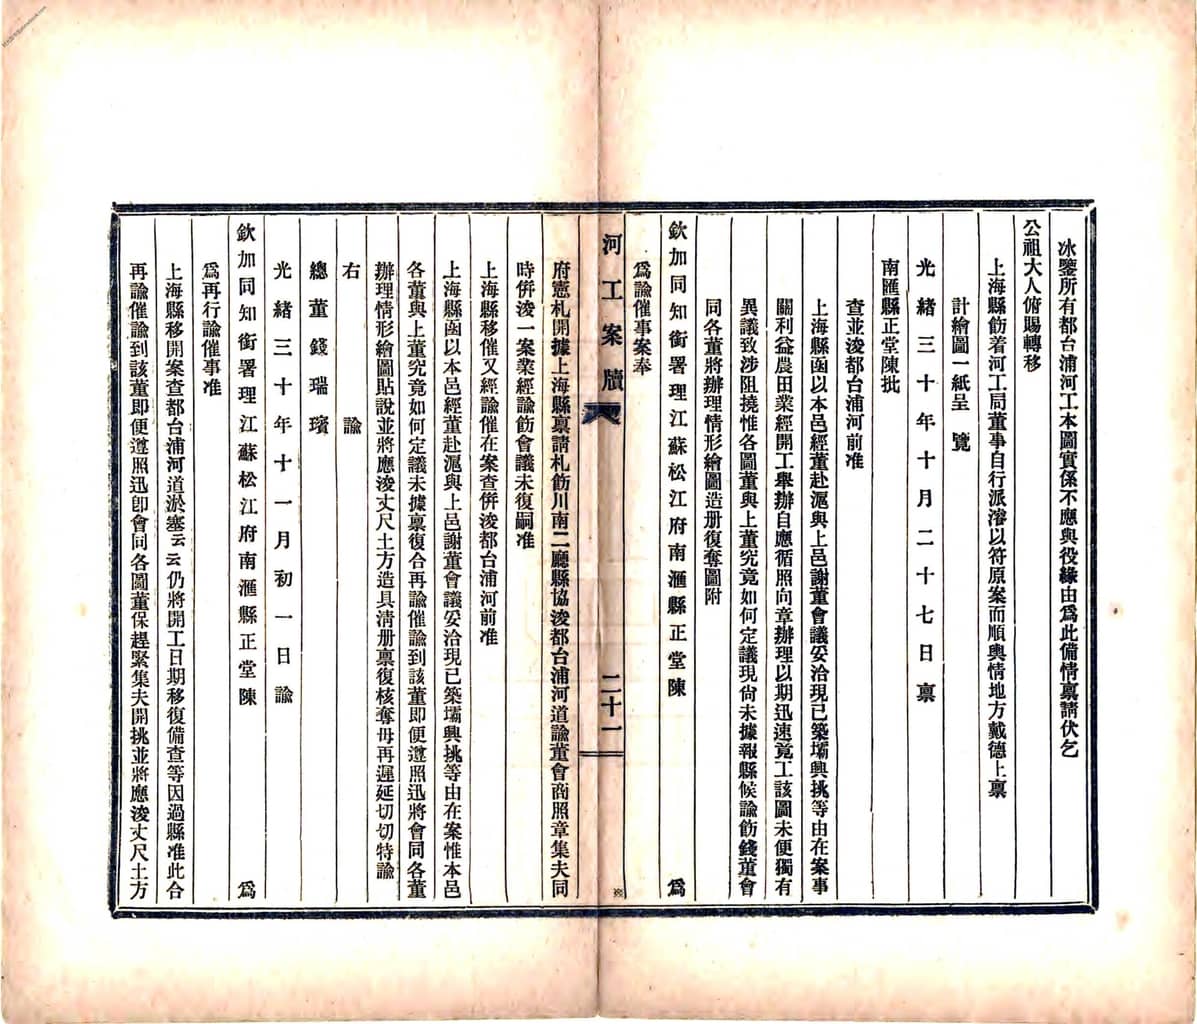 冰鑒所有都台浦河工本圖實係不應與役緣由爲此備情稟請伏乞
公祖大人俯賜轉移
上海縣飭着河工局董事自行派濬以符原案而順輿情地方戴德上稟
計繪圖一紙呈　覽
光緒三十年十月二十七日稟
南匯縣正堂陳批
查並浚都台浦河前准
上海縣函以本邑經董赴滬與上邑謝董會議妥洽現已築壩興挑等由在案事
關利益農田業經開工舉辦自應循照向章辦理以期迅速竟工該圖未便獨有
異議致涉阻撓惟各圖董與上董究竟如何定議現尙未據報縣候諭飭錢董會
同各董將辦理情形繪圖造册復奪圖附
欽加同知銜署理江蘇松江府南滙縣正堂陳　爲
爲諭催事案奉
河工案牘
二十一
府憲札開據上海縣稟請札飭川南二廳縣協浚都台浦河道諭董會商照章集夫同
時併浚一案業經諭飭會議未復嗣准
上海縣移催又經諭催在案查併浚都台浦河前准
上海縣函以本邑經董赴滬與上邑謝董會議妥洽現已築壩興挑等由在案惟本邑
各董與上董究竟如何定議未據稟復合再諭催諭到該董即便遵照迅將會同各董
辦理情形繪圖貼說並將應浚丈尺土方造具淸册稟復核奪毋再遲延切切特諭
右　諭
總董錢瑞璸
光緒三十年十一月初一日諭
欽加同知銜署理江蘇松江府南滙縣正堂陳　爲
爲再行諭催事准
上海縣移開案查都台浦河道淤塞云云仍將開工日期移復備查等因過縣准此合
再諭催諭到該董即便遵照迅卽會同各圖董保趕緊集夫開挑並將應浚丈尺土方